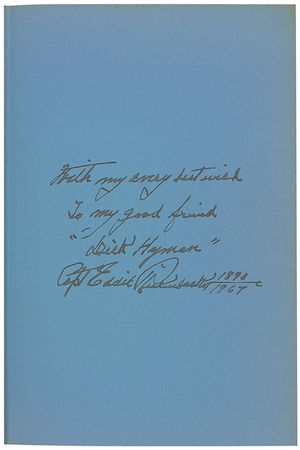 With my every best wish
To my good friend
"Dick Hyman"
Capt Eddie Rickenbacker 1890
1967